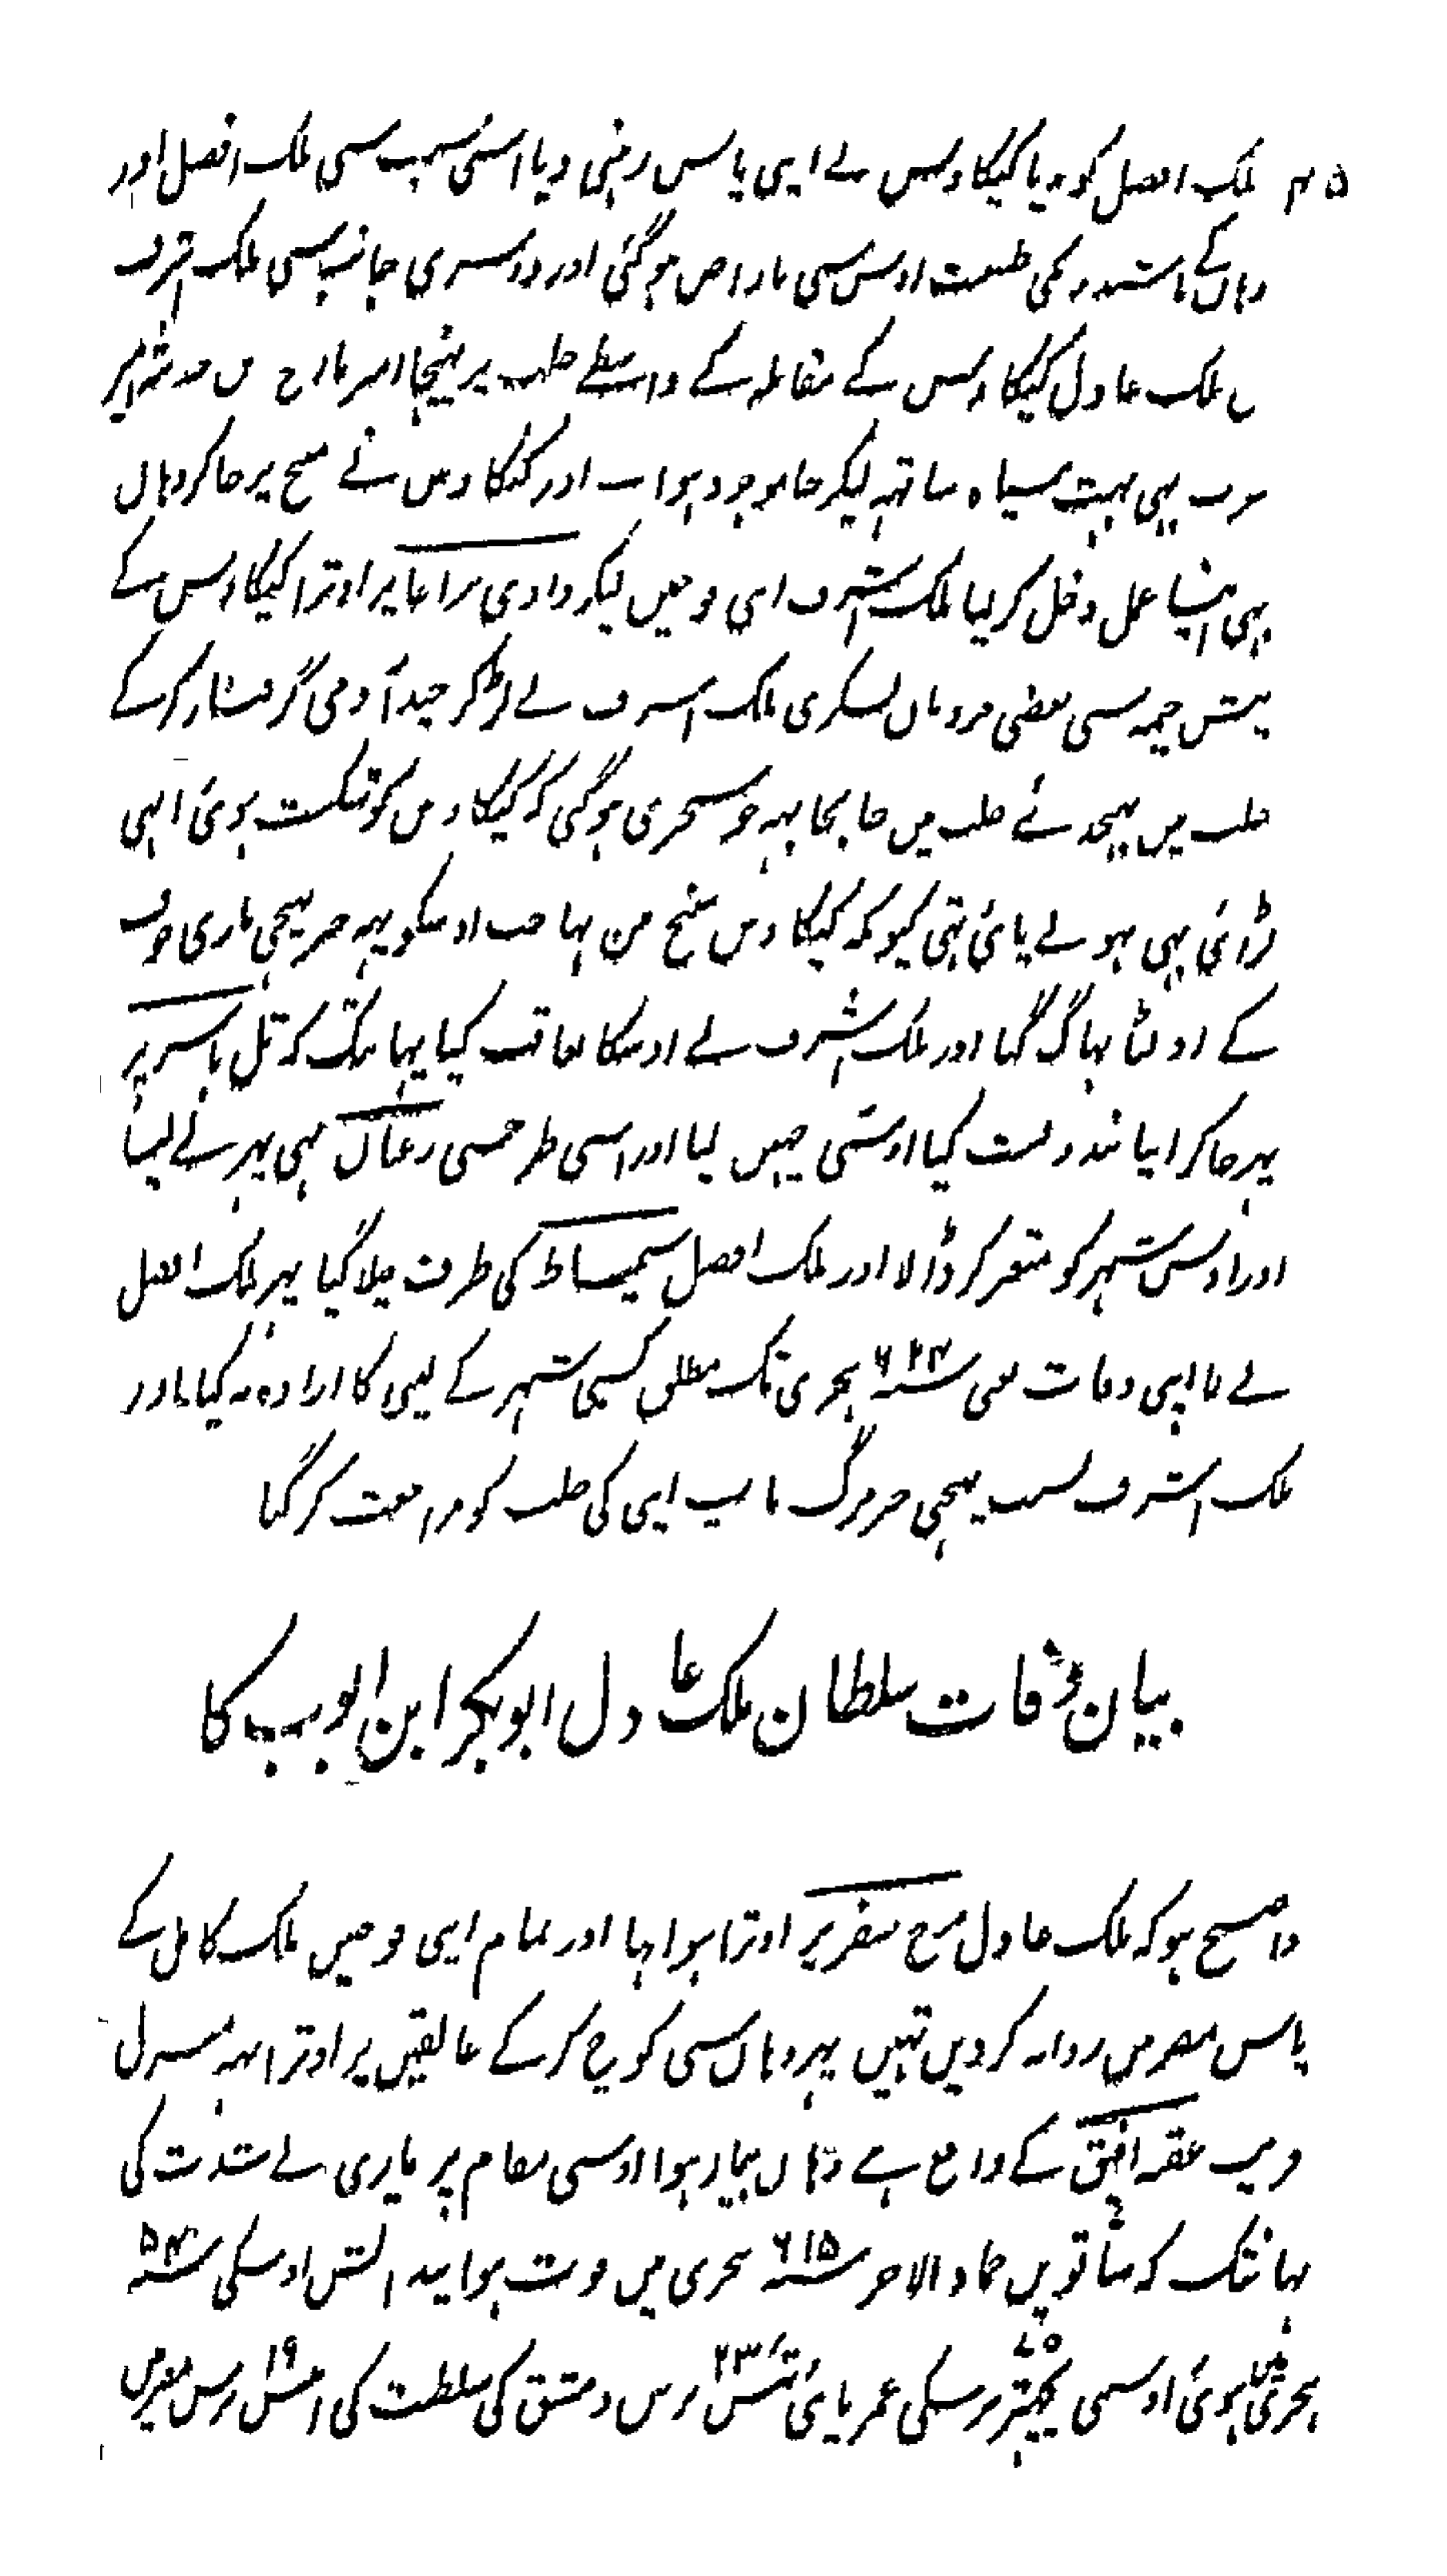 ۴۵ ملک افضل کو نہ دیا کیکاوس نے اپنی پاس رہنی دیا اسی سبب سی ملک افضل اور
وہاں کے باشندونکی طبیعت اوس سی ناراض ہوگئی اور دوسری جانب سی ملک اشرف
بن ملک عادل کیکاوس کے مقابلہ کے واسطے حلب پر پہنچا امیر مانع بن حدیثہ امیر
عرب بہی بہت سپاہ ساتہہ لیکر جا موجود ہوا اور کیکاوس نے منبج پر جا کر وہاں
بہی اپنا عمل دخل کر لیا ملک اشرف اپنی فوجیں لیکر وادی بزاعا پر اوترا کیکاوس کے
پیش خیمہ سی بعضی مردمان لشکری ملک اشرف نے لڑکر چند آدمی گرفتار کر کے
حلب میں بہیجدئے حلب میں جا بجا یہہ خوشخبری ہوگئی کہ کیکاوس کو شکست ہوئی ابہی
لڑائی بہی ہونے پائی تہی کیونکہ کیکاوس منبج میں تہا جب اوسکو یہہ خبر پہنچی ماری خوف
کے اولٹا بہاگ گیا اور ملک اشرف نے اوسکا تعاقب کیا یہانتک کہ تل باشر پر
پہر جا کر اپنا بندوبست کیا اوسی چہین لیا اور اسی طرح سی رعبان بہی پہر لے لیا
اور اوس شہر کو متغیر کر ڈالا اور ملک افضل سمیساط کی طرف چلا گیا پہر ملک افضل
نے تا اپنی وفات یعنی سنہ ۶۲۲ ہجری تک مطلق کسی شہر کے لینی کا ارادہ نہ کیا اور
ملک اشرف بسبب پہنچی خبر مرگ باپ اپنی کی حلب کو مراجعت کر گیا
بیان وفات سلطان ملک عادل ابوبکر ابن ایوب کا
واضح ہو کہ ملک عادل مرج صفر پر اوترا ہوا تہا اور تمام اپنی فوجیں ملک کامل کے
پاس مصر میں روانہ کر دیں تہیں پہر وہاں سی کوچ کر کے عالقین پر اوترا یہہ منزل
قریب عقبہ افیق کے واقع ہے وہاں بیمار ہوا اوسی مقام پر بیماری نے شدت کی
یہانتک کہ ساتویں جماد الاخر سنہ ۶۱۵ ہجری میں فوت ہوا پیدائش اوسکی سنہ ۵۴۰
ہجری میں ہوئی اوسی پچہتر ۷۵ برسکی عمر پائی تئیس ۲۳ برس دمشق کی سلطنت کی انیس ۱۹ برس مصر میں